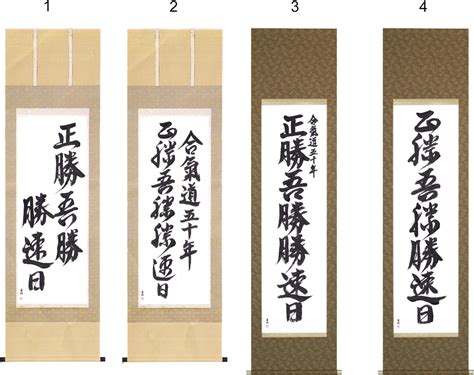 1 2 3 4
正勝吾勝
勝速日
合氣道五十年
正勝吾勝勝速日
合氣道五十年
正勝吾勝勝速日
正勝吾勝勝速日